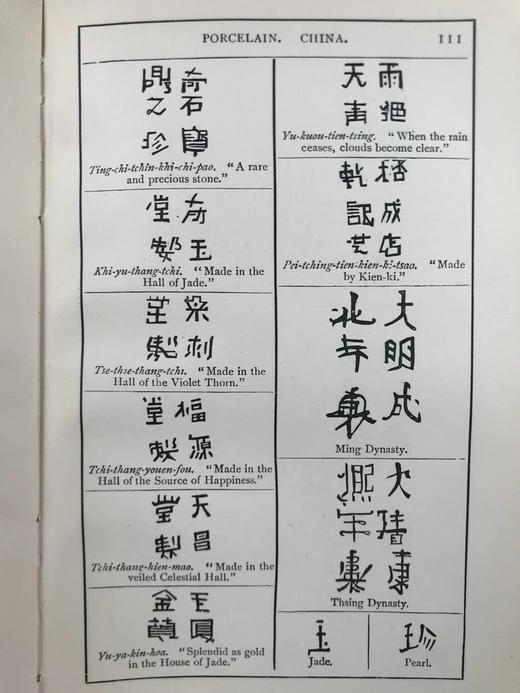 PORCELAIN. CHINA. 111
奇石寶
鼎之珍
Ting-chi-tchin-khi-chi-pao. "A rare
and precious stone."
奇玉
堂製
Khi-yu-thang-tchi. "Made in the
Hall of Jade."
刺
製
Tse-thse-thang-tchi. "Made in the
Hall of the Violet Thorn."
福源
堂製
Tchi-thang-youen-fou. "Made in the
Hall of the Source of Happiness."
天昌
堂製
Tchi-thang-hien-mao. "Made in the
veiled Celestial Hall."
玉
金
Yu-ya-kin-hoa. "Splendid as gold
in the House of Jade."
雨過
天青
Yu-kuou-tien-tsing. "When the rain
ceases, clouds become clear."
成店
乾記
Pei-tching-tien-kien-ki-tsao. "Made
by Kien-ki."
大明成
化年製
Ming Dynasty.
大清康
熙年製
Thsing Dynasty.
玉
Jade.
珍
Pearl.